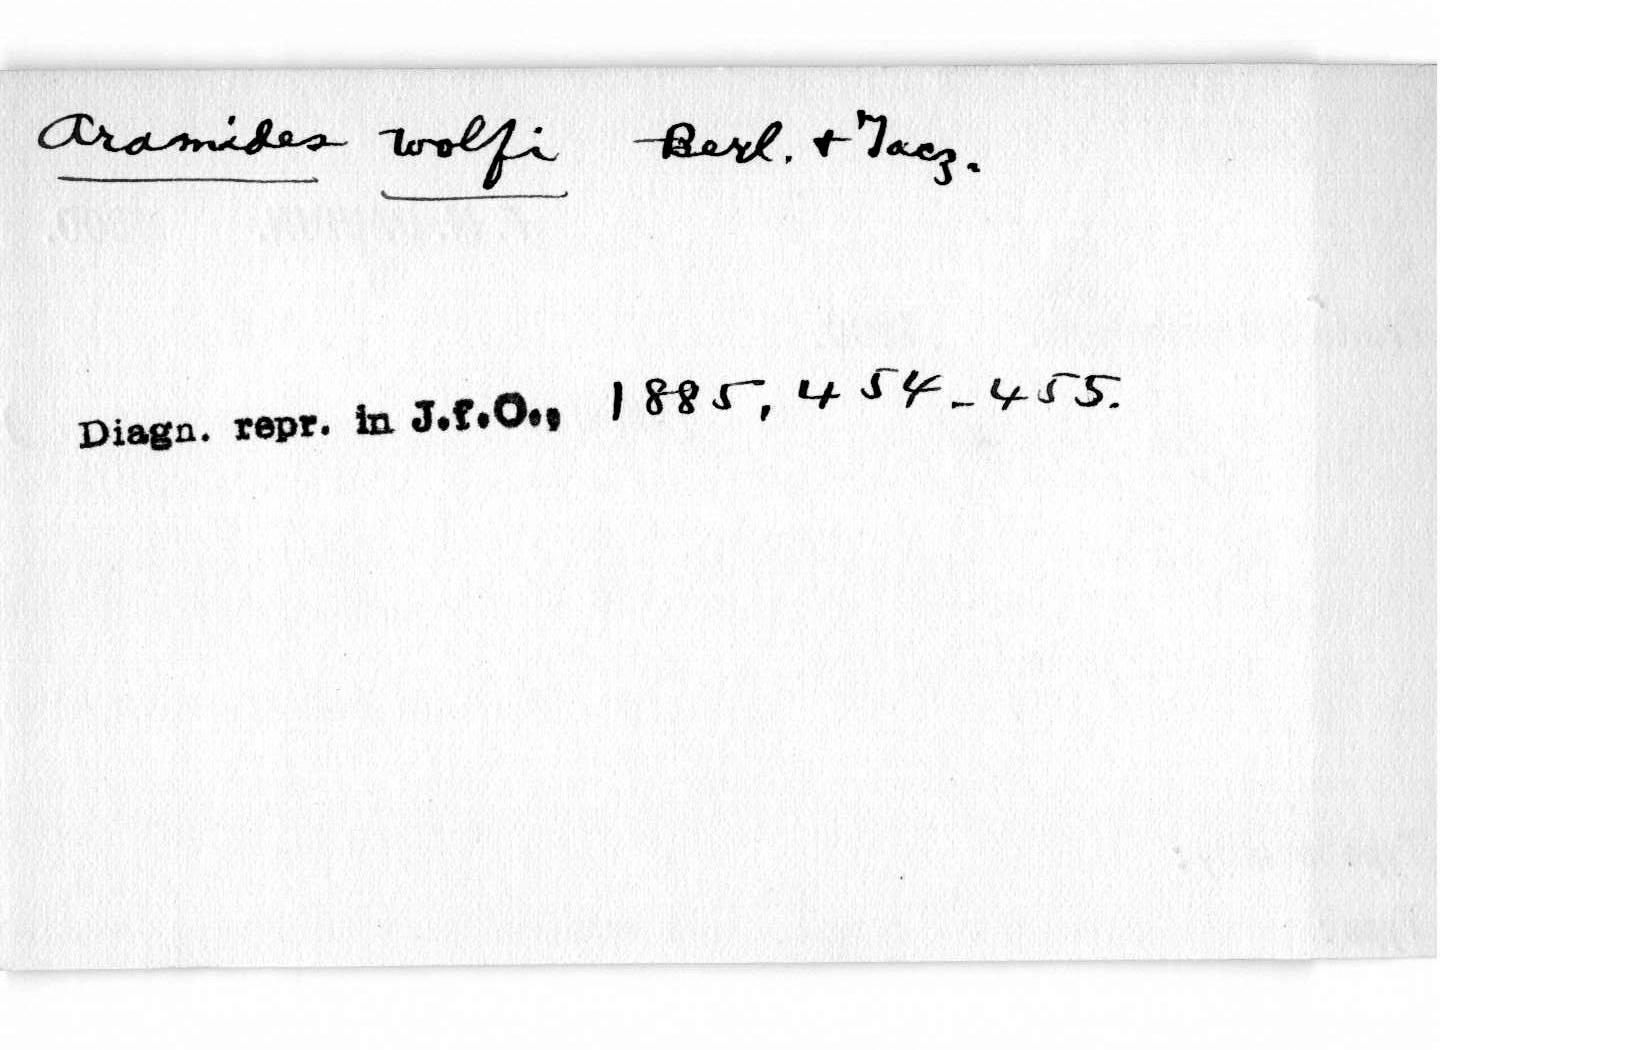 Aramides wolfi Berl. + Tacz.
Diagn. repr. in J.f.O., 1885, 454-455.